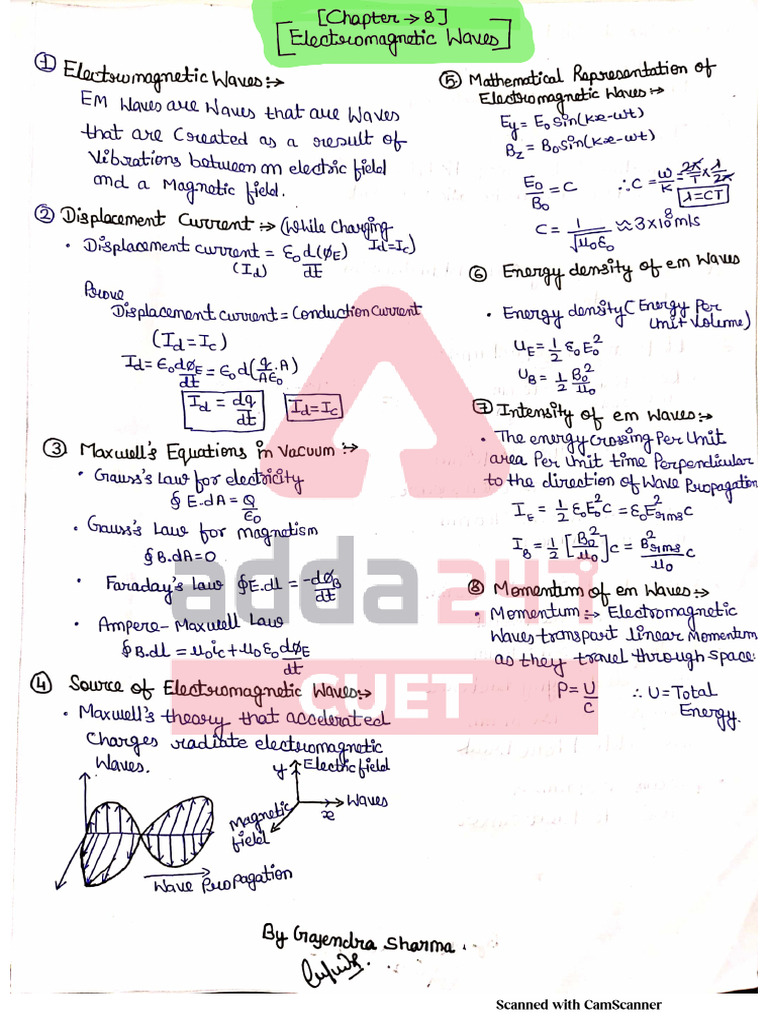 [Chapter → 8]
[Electromagnetic Waves]
① Electromagnetic Waves:→
EM Waves are Waves that are Waves
that are Created as a result of
Vibrations between an electric field
and a Magnetic field.
② Displacement Current :→ (While Charging
Id=Ic)
• Displacement current = ε₀ d(φE)/dt
(Id)
Prove
Displacement current = Conduction Current
(Id = Ic)
Id = ε₀ dφE/dt = ε₀ d(q/Aε₀ . A)
Id = dq/dt  Id = Ic
③ Maxwell's Equations in Vacuum :→
• Gauss's Law for electricity
∮ E.dA = Q/ε₀
• Gauss's Law for magnetism
∮ B.dA = 0
• Faraday's Law ∮E.dl = -dφB/dt
• Ampere-Maxwell Law
∮ B.dl = μ₀ic + μ₀ε₀ dφE/dt
④ Source of Electromagnetic Waves:→
• Maxwell's theory that accelerated
Charges radiate electromagnetic
Waves.
y Electric field
Magnetic
field
x
Waves
Wave Propagation
⑤ Mathematical Representation of
Electromagnetic Waves:→
Ey = E₀ sin(kx-wt)
Bz = B₀ sin(kx-wt)
E₀/B₀ = C ∴ C = w/k = 2π/T × λ/2π
λ = CT
C = 1/√μ₀ε₀ ≈ 3×10⁸ m/s
⑥ Energy density of em Waves
• Energy density (Energy Per
Unit Volume)
UE = 1/2 ε₀ E₀²
UB = 1/2 B₀²/μ₀
⑦ Intensity of em Waves:→
• The energy Crossing Per Unit
area Per Unit time Perpendicular
to the direction of Wave Propagation
IE = 1/2 ε₀E₀²c = ε₀E²rms c
IB = 1/2 [B₀²/μ₀] c = B²rms/μ₀ c
⑧ Momentum of em Waves:→
• Momentum :→ Electromagnetic
Waves transport linear Momentum
as they travel through space:
P = U/C ∴ U = Total
Energy.
adda247
CUET
By Gajendra Sharma.
Scanned with CamScanner